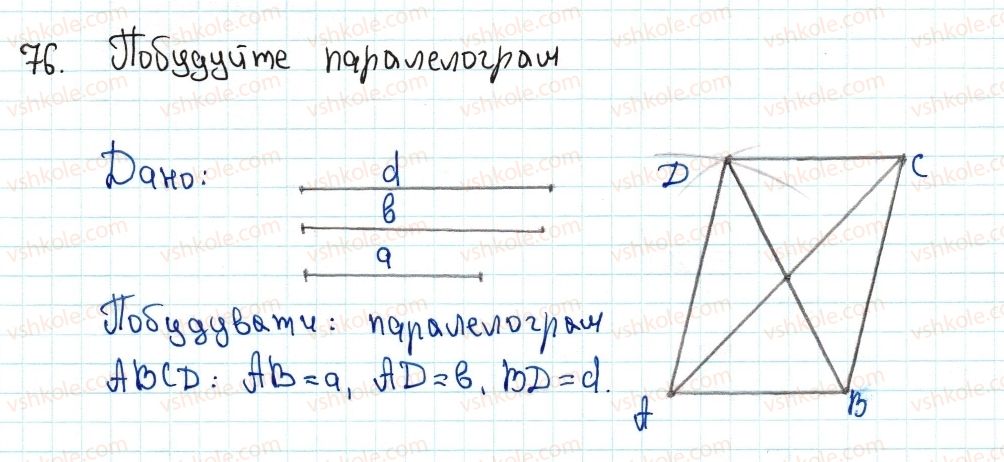 76. Побудуйте паралелограм
Дано:
d
в
a
Побудувати: паралелограм
ABCD: AB=a, AD=в, BD=d.
D
C
A
B
vshkole.com